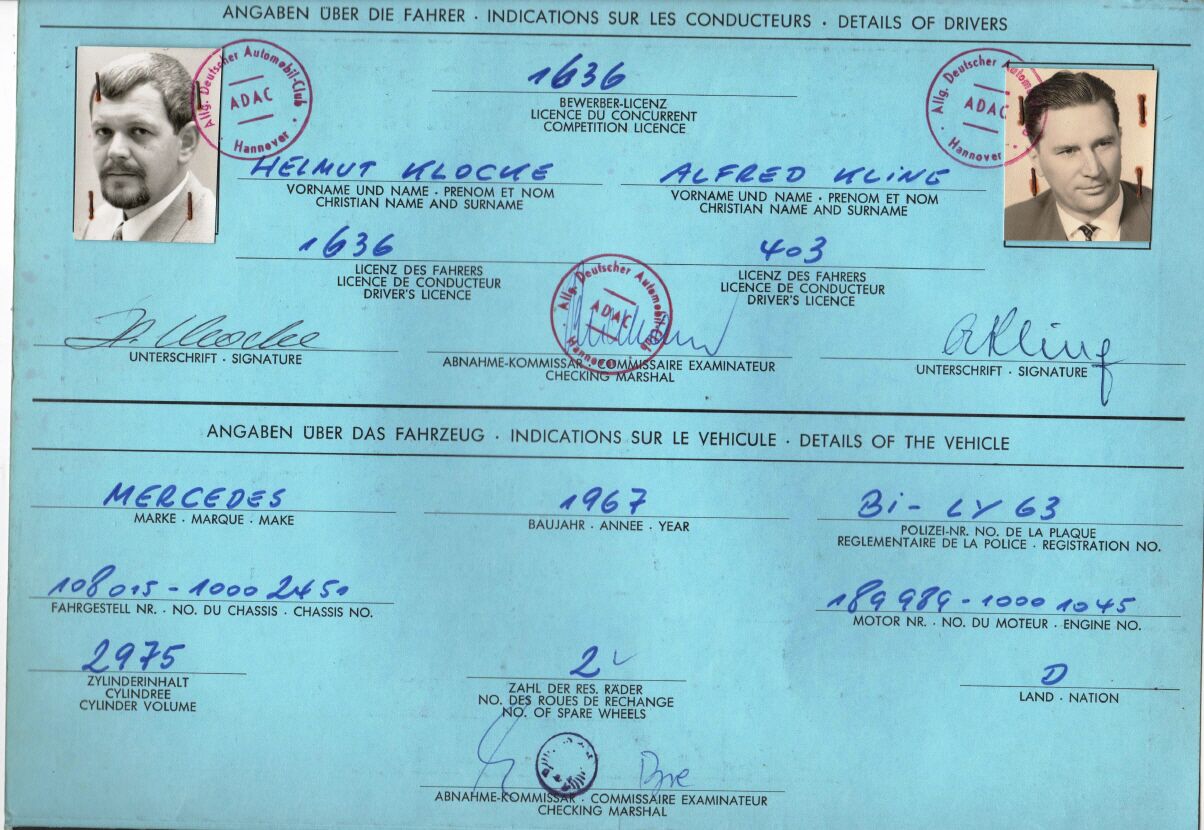 ANGABEN ÜBER DIE FAHRER · INDICATIONS SUR LES CONDUCTEURS · DETAILS OF DRIVERS
Allg. Deutscher Automobil-Club
ADAC
Hannover
1636
BEWERBER-LICENZ
LICENCE DU CONCURRENT
COMPETITION LICENCE
Allg. Deutscher
ADAC
Hannover
HELMUT KLOCKE
VORNAME UND NAME · PRENOM ET NOM
CHRISTIAN NAME AND SURNAME
ALFRED KLING
VORNAME UND NAME · PRENOM ET NOM
CHRISTIAN NAME AND SURNAME
1636
LICENZ DES FAHRERS
LICENCE DE CONDUCTEUR
DRIVER'S LICENCE
403
LICENZ DES FAHRERS
LICENCE DE CONDUCTEUR
DRIVER'S LICENCE
H. Klocke
UNTERSCHRIFT · SIGNATURE
Allg. Deutscher Automobil-Club
ADAC
Hannover
ABNAHME-KOMMISSAR · COMMISSAIRE EXAMINATEUR
CHECKING MARSHAL
A Kling
UNTERSCHRIFT · SIGNATURE
ANGABEN ÜBER DAS FAHRZEUG · INDICATIONS SUR LE VEHICULE · DETAILS OF THE VEHICLE
MERCEDES
MARKE · MARQUE · MAKE
1967
BAUJAHR · ANNEE · YEAR
Bi - LY 63
POLIZEI-NR. NO. DE LA PLAQUE
REGLEMENTAIRE DE LA POLICE · REGISTRATION NO.
108015-10002451
FAHRGESTELL NR. · NO. DU CHASSIS · CHASSIS NO.
189989-10001045
MOTOR NR. · NO. DU MOTEUR · ENGINE NO.
2975
ZYLINDERINHALT
CYLINDREE
CYLINDER VOLUME
2
ZAHL DER RES. RÄDER
NO. DES ROUES DE RECHANGE
NO. OF SPARE WHEELS
D
LAND · NATION
ABNAHME-KOMMISSAR · COMMISSAIRE EXAMINATEUR
CHECKING MARSHAL